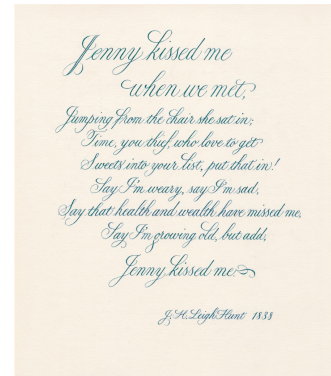 Jenny kissed me
when we met,
Jumping from the chair she sat in;
Time, you thief, who love to get
Sweets into your list, put that in!
Say I'm weary, say I'm sad,
Say that health and wealth have missed me,
Say I'm growing old, but add,
Jenny kissed me
J. H. Leigh Hunt 1838